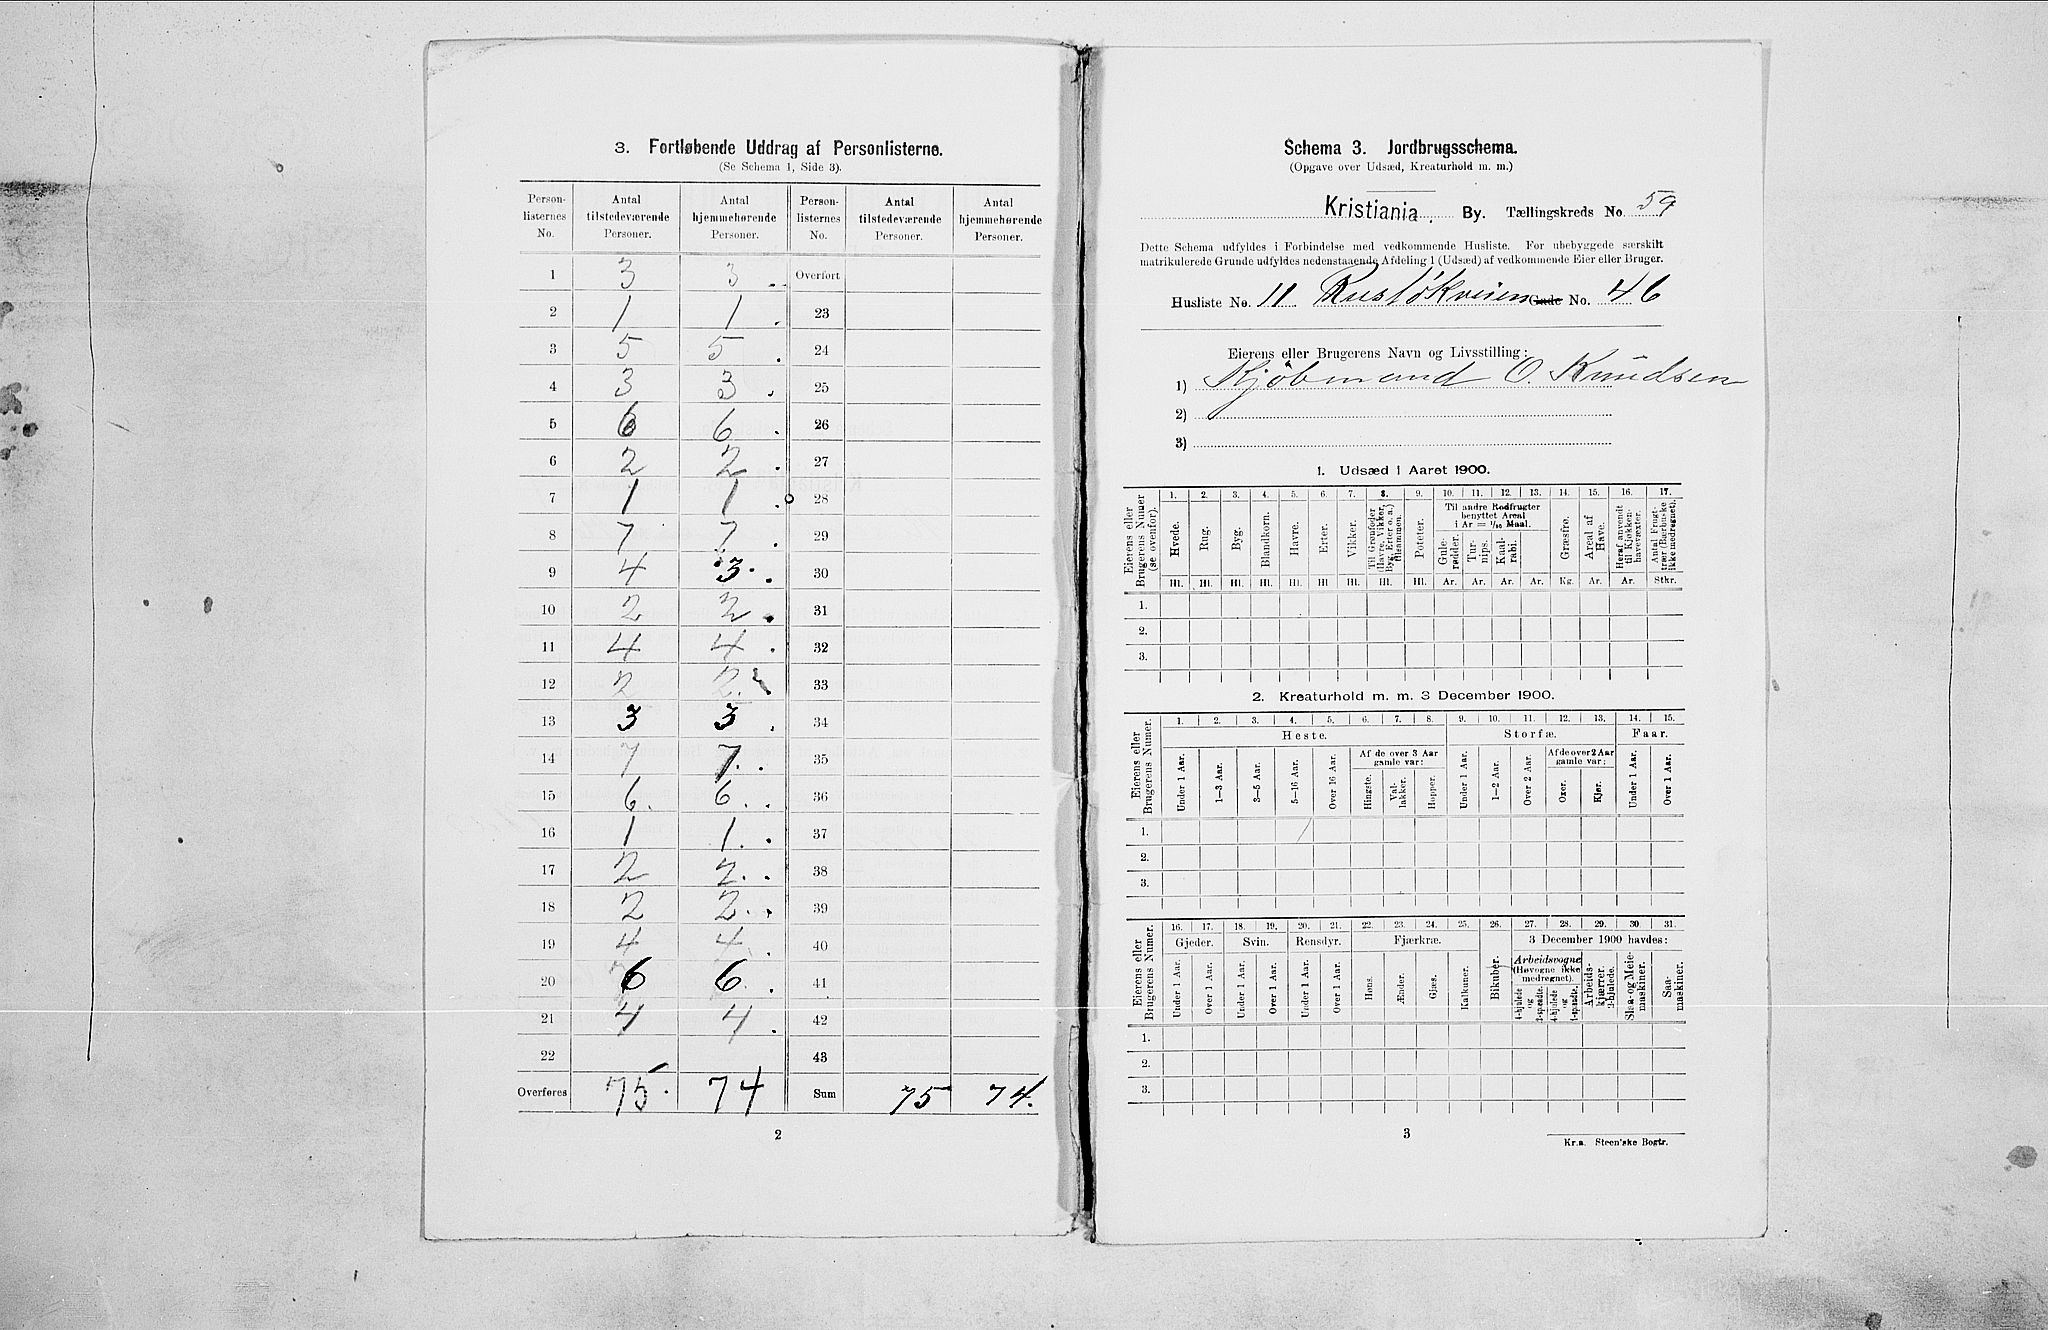 3. Fortløbende Uddrag af Personlisterne.
(Se Schema 1, Side 3).
Person-listernes No. | Antal tilstedeværende Personer. | Antal hjemmehørende Personer. | Person-listernes No. | Antal tilstedeværende Personer. | Antal hjemmehørende Personer.
1 | 3 | 3 | Overført
2 | 1 | 1 | 23
3 | 5 | 5 | 24
4 | 3 | 3 | 25
5 | 6 | 6 | 26
6 | 2 | 2 | 27
7 | 1 | 1 | 28
8 | 7 | 7 | 29
9 | 4 | 3 | 30
10 | 2 | 2 | 31
11 | 4 | 4 | 32
12 | 2 | 2 | 33
13 | 3 | 3 | 34
14 | 7 | 7 | 35
15 | 6 | 6 | 36
16 | 1 | 1 | 37
17 | 2 | 2 | 38
18 | 2 | 2 | 39
19 | 4 | 4 | 40
20 | 6 | 6 | 41
21 | 4 | 4 | 42
22 | | | 43
Overføres | 75 | 74 | Sum | 75 | 74.
2
Schema 3. Jordbrugsschema.
(Opgave over Udsæd, Kreaturhold m. m.)
Kristiania. By. Tællingskreds No. 59
Dette Schema udfyldes i Forbindelse med vedkommende Husliste. For ubebyggede særskilt
matrikulerede Grunde udfyldes nedenstaaende Afdeling 1 (Udsæd) af vedkommende Eier eller Bruger.
Husliste No. 11 Ruseløkveien Gade No. 46
Eierens eller Brugerens Navn og Livsstilling:
1) Kjøbmand O. Knudsen
2)
3)
1. Udsæd i Aaret 1900.
Eierens eller Brugerens Numer (se ovenfor).
1. 2. 3. 4. 5. 6. 7. 8. 9. 10. 11. 12. 13. 14. 15. 16. 17.
Hvede. Rug. Byg. Blandkorn. Havre. Erter. Vikker. Til Grønfoder (Havre, Vikker, Byg, Erter o. a.) tilsammen. Poteter.
Til andre Rodfrugter benyttet Areal i Ar = 1/10 Maal.
Gule-rødder. Tur-nips. Kaal-rabi. Græsfrø. Areal af Have. Heraf anvendt til Kjøkken-havevæxter. Antal Frugt-trær (Bærbuske ikke medregnet).
Hl. Hl. Hl. Hl. Hl. Hl. Hl. Hl. Hl. Ar. Ar. Ar. Ar. Kg. Ar. Ar. Stkr.
1.
2.
3.
2. Kreaturhold m. m. 3 December 1900.
Eierens eller Brugerens Numer.
1. 2. 3. 4. 5. 6. 7. 8. 9. 10. 11. 12. 13. 14. 15.
Heste. Storfæ. Faar.
Under 1 Aar. 1—3 Aar. 3—5 Aar. 5—16 Aar. Over 16 Aar.
Af de over 3 Aar gamle var: Hingste. Val-lakker. Hopper.
Under 1 Aar. 1—2 Aar. Over 2 Aar.
Af de over 2 Aar gamle var: Oxer. Kjør.
Under 1 Aar. Over 1 Aar.
1.
2.
3.
Eierens eller Brugerens Numer.
16. 17. 18. 19. 20. 21. 22. 23. 24. 25. 26. 27. 28. 29. 30. 31.
Gjeder. Svin. Rensdyr. Fjærkræ. 3 December 1900 havdes:
Under 1 Aar. Over 1 Aar. Under 1 Aar. Over 1 Aar. Under 1 Aar. Over 1 Aar. Høns. Ænder. Gjæs. Kalkuner. Bikuber.
Arbeidsvogne (Høvogne ikke medregnet). 4-hjulede og 2-spændte. 4-hjulede og 1-spændte. Arbeids-kjærrer, 2-hjulede. Slaa- og Meie-maskiner. Saa-maskiner.
1.
2.
3.
3
Kr.a. Steen'ske Bogtr.